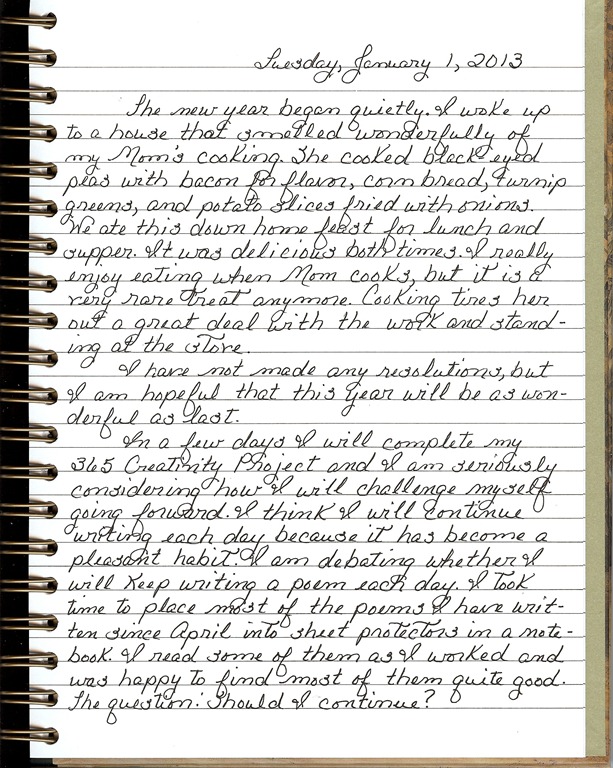 Tuesday, January 1, 2013
The new year began quietly. I woke up
to a house that smelled wonderfully of
my Mom's cooking. She cooked black-eyed
peas with bacon for flavor, corn bread, turnip
greens, and potato slices fried with onions.
We ate this down home feast for lunch and
supper. It was delicious both times. I really
enjoy eating when Mom cooks, but it is a
very rare treat anymore. Cooking tires her
out a great deal with the work and stand-
ing at the stove.
I have not made any resolutions, but
I am hopeful that this year will be as won-
derful as last.
In a few days I will complete my
365 Creativity Project and I am seriously
considering how I will challenge myself
going forward. I think I will continue
writing each day because it has become a
pleasant habit. I am debating whether I
will keep writing a poem each day. I took
time to place most of the poems I have writ-
ten since April into sheet protectors in a note-
book. I read some of them as I worked and
was happy to find most of them quite good.
The question: Should I continue?